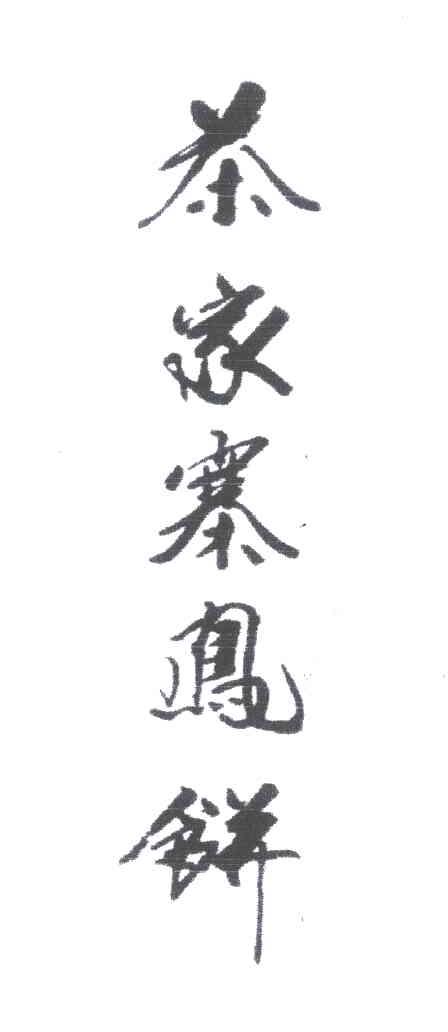 茶家寨鳳餅